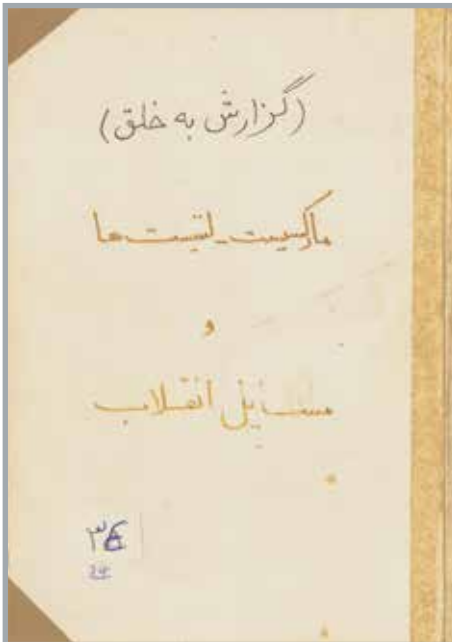 (گزارش به خلق)
مارکسیست - لنینیست ها
و
مسایل انقلاب
۳۴